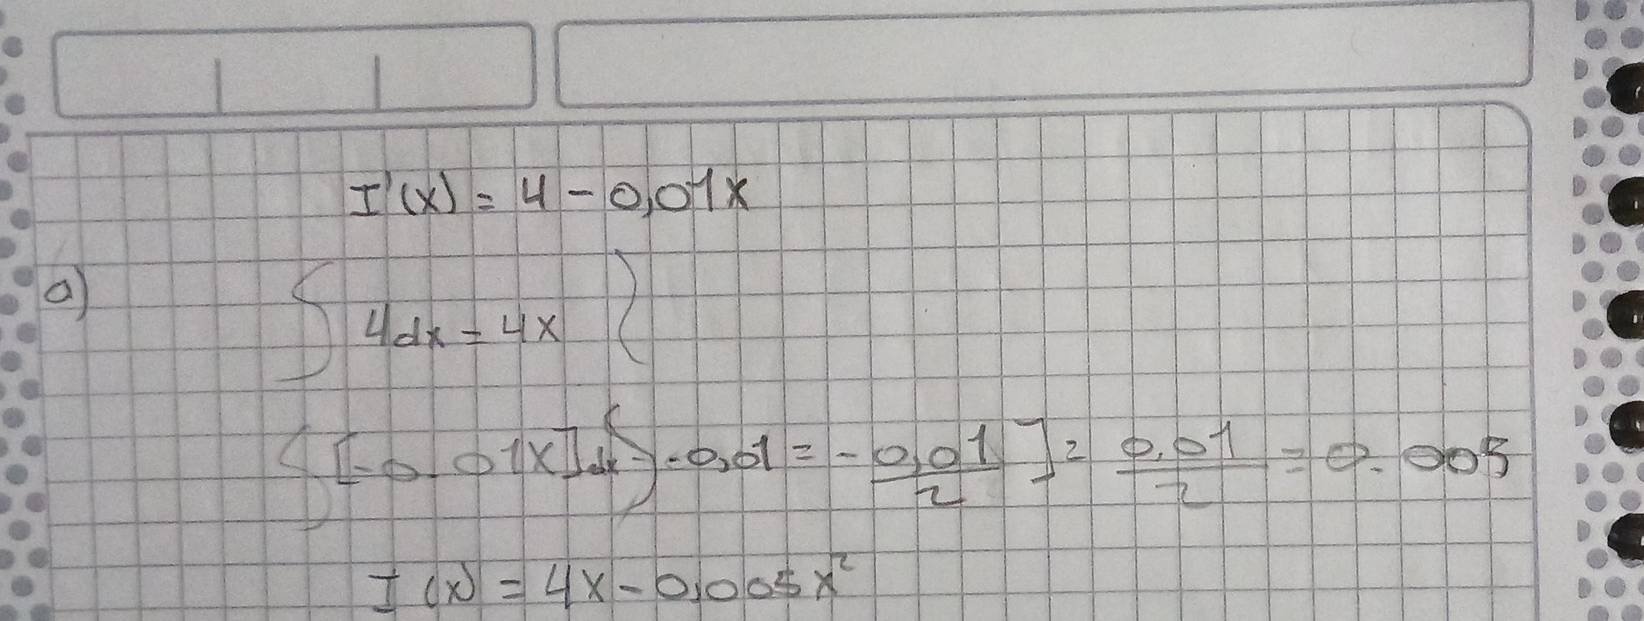 I'(x) = 4 - 0,01x
a) ∫ 4dx = 4x
∫ [-0.01x]dx ∫ -0,01 = - 0,01/2 ] = 0,01/2 = 0.005
I(x) = 4x - 0,005x²